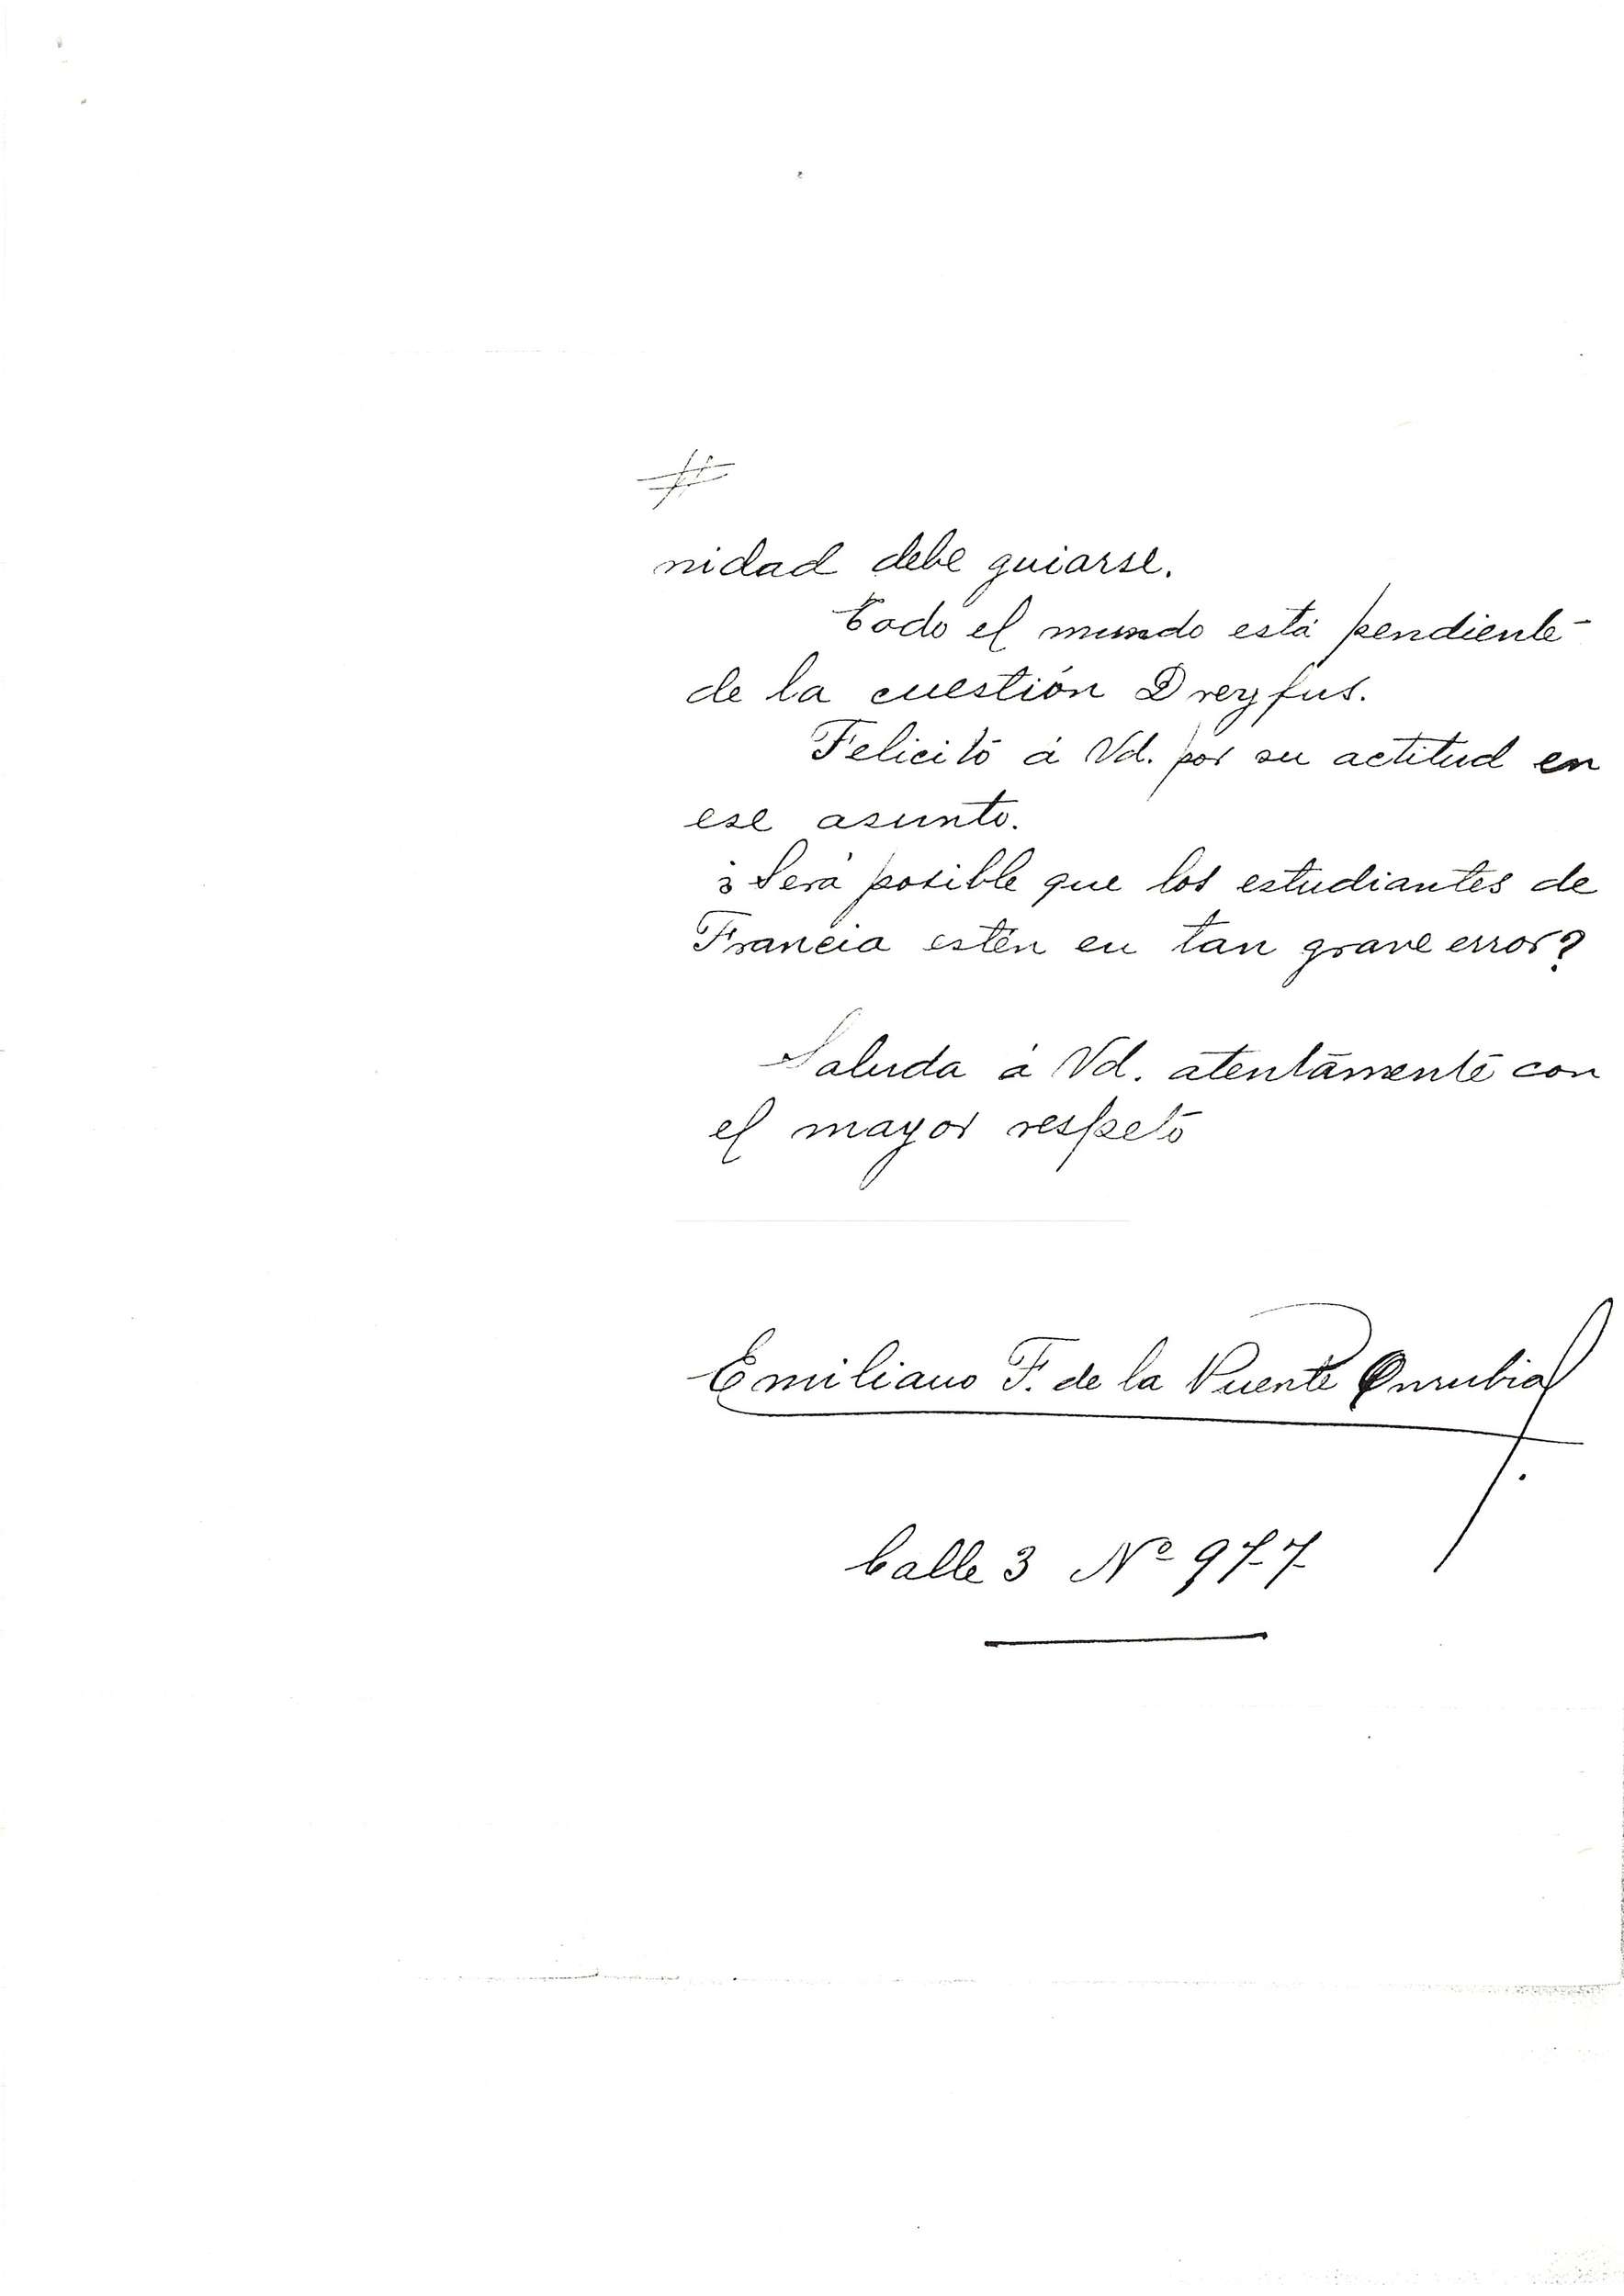 nidad debe guiarse.
Todo el mundo está pendiente
de la cuestión Dreyfus.
Felicito á Vd. por su actitud en
ese asunto.
¿Será posible que los estudiantes de
Francia estén en tan grave error?
Saluda á Vd. atentamente con
el mayor respeto
Emiliano F. de la Puente
Calle 3 Nº 977